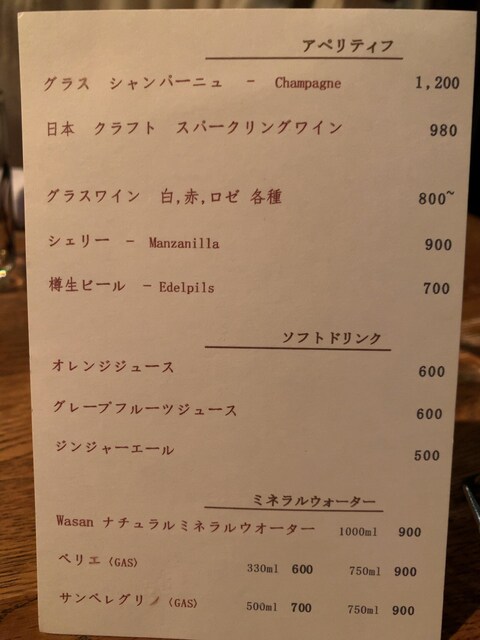 アペリティフ
グラス シャンパーニュ － Champagne 1,200
日本 クラフト スパークリングワイン 980
グラスワイン 白,赤,ロゼ 各種 800~
シェリー － Manzanilla 900
樽生ビール － Edelpils 700
ソフトドリンク
オレンジジュース 600
グレープフルーツジュース 600
ジンジャーエール 500
ミネラルウォーター
Wasan ナチュラルミネラルウオーター 1000ml 900
ペリエ (GAS) 330ml 600 750ml 900
サンペレグリノ (GAS) 500ml 700 750ml 900